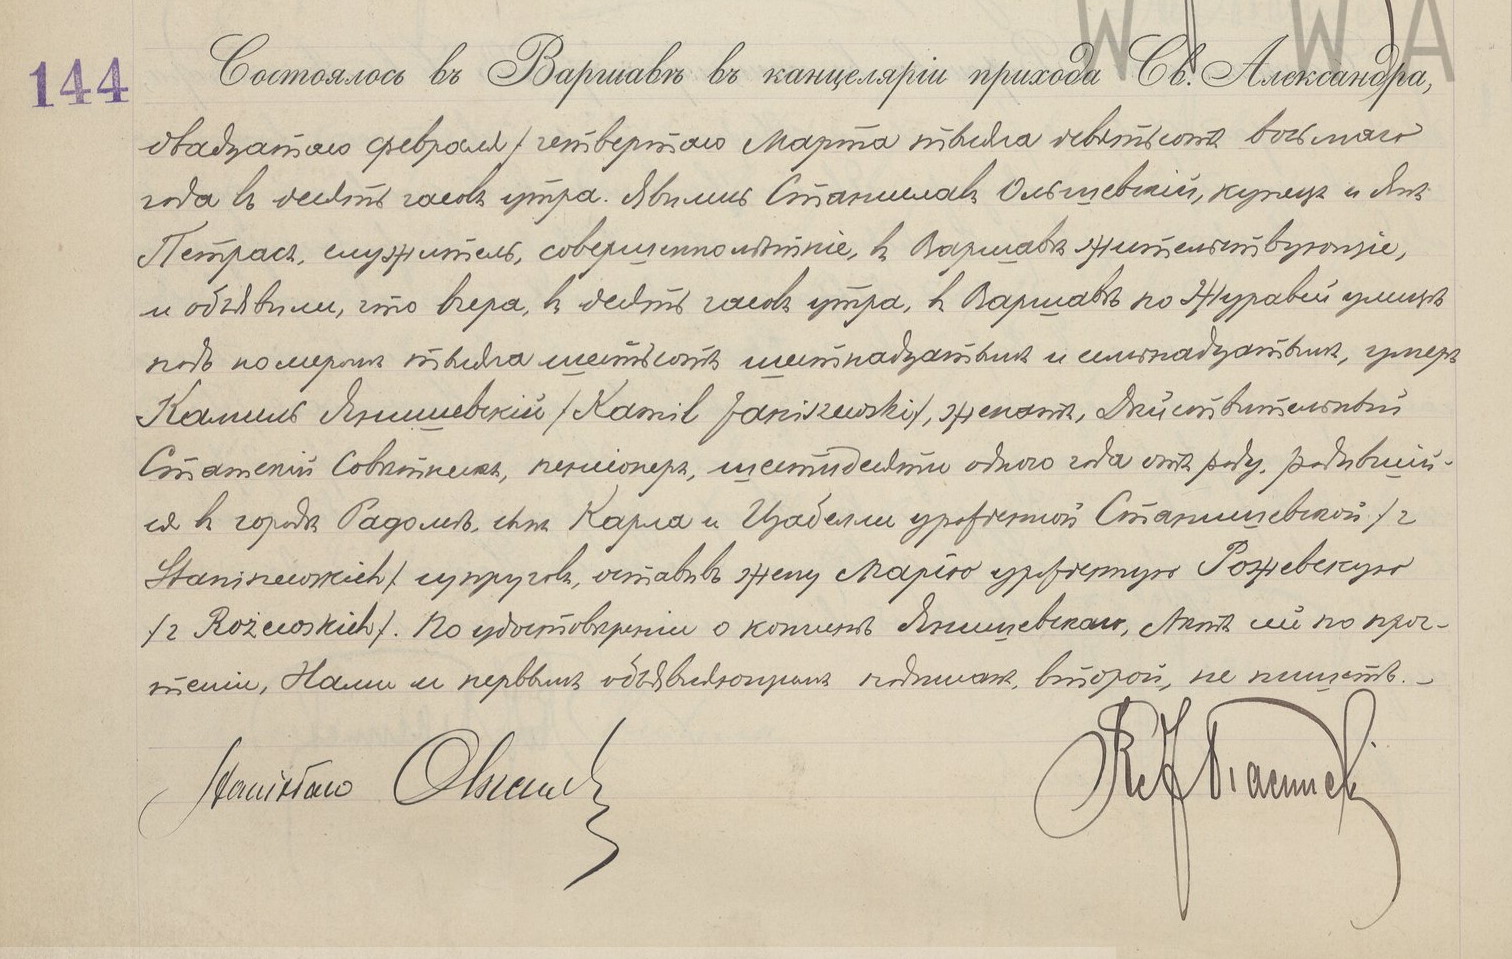 W W A
144
Состоялось въ Варшавѣ въ канцеляріи прихода Св. Александра,
двадцатаго февраля / четвертаго Марта тысяча девятьсотъ восьмаго
года въ десять часовъ утра. Явились Станиславъ Ольшевскій, купецъ и Янъ
Петрасъ, служитель, совершеннолѣтніе, въ Варшавѣ жительствующіе,
и объявили, что вчера, въ десять часовъ утра, въ Варшавѣ по Журавей улицѣ
подъ номеромъ тысяча шестьсотъ шестнадцатымъ и семнадцатымъ, умеръ
Камиль Янишевскій /Kamil Janiszewski/, женатъ, Дѣйствительный
Статскій Совѣтникъ, пенсіонеръ, шестидесяти одного года отъ роду, родивший-
ся въ городѣ Радомѣ, сынъ Карла и Изабеллы урожденной Станишевской /z
Staniszewskich/ супруговъ, оставивъ жену Марію урожденную Рожевскую
/z Rożewskich/. По удостовѣреніи о кончинѣ Янишевскаго, Актъ сей по проч-
теніи, Нами и первымъ объявляющимъ подписанъ, второй, не пишетъ. –
Stanisław